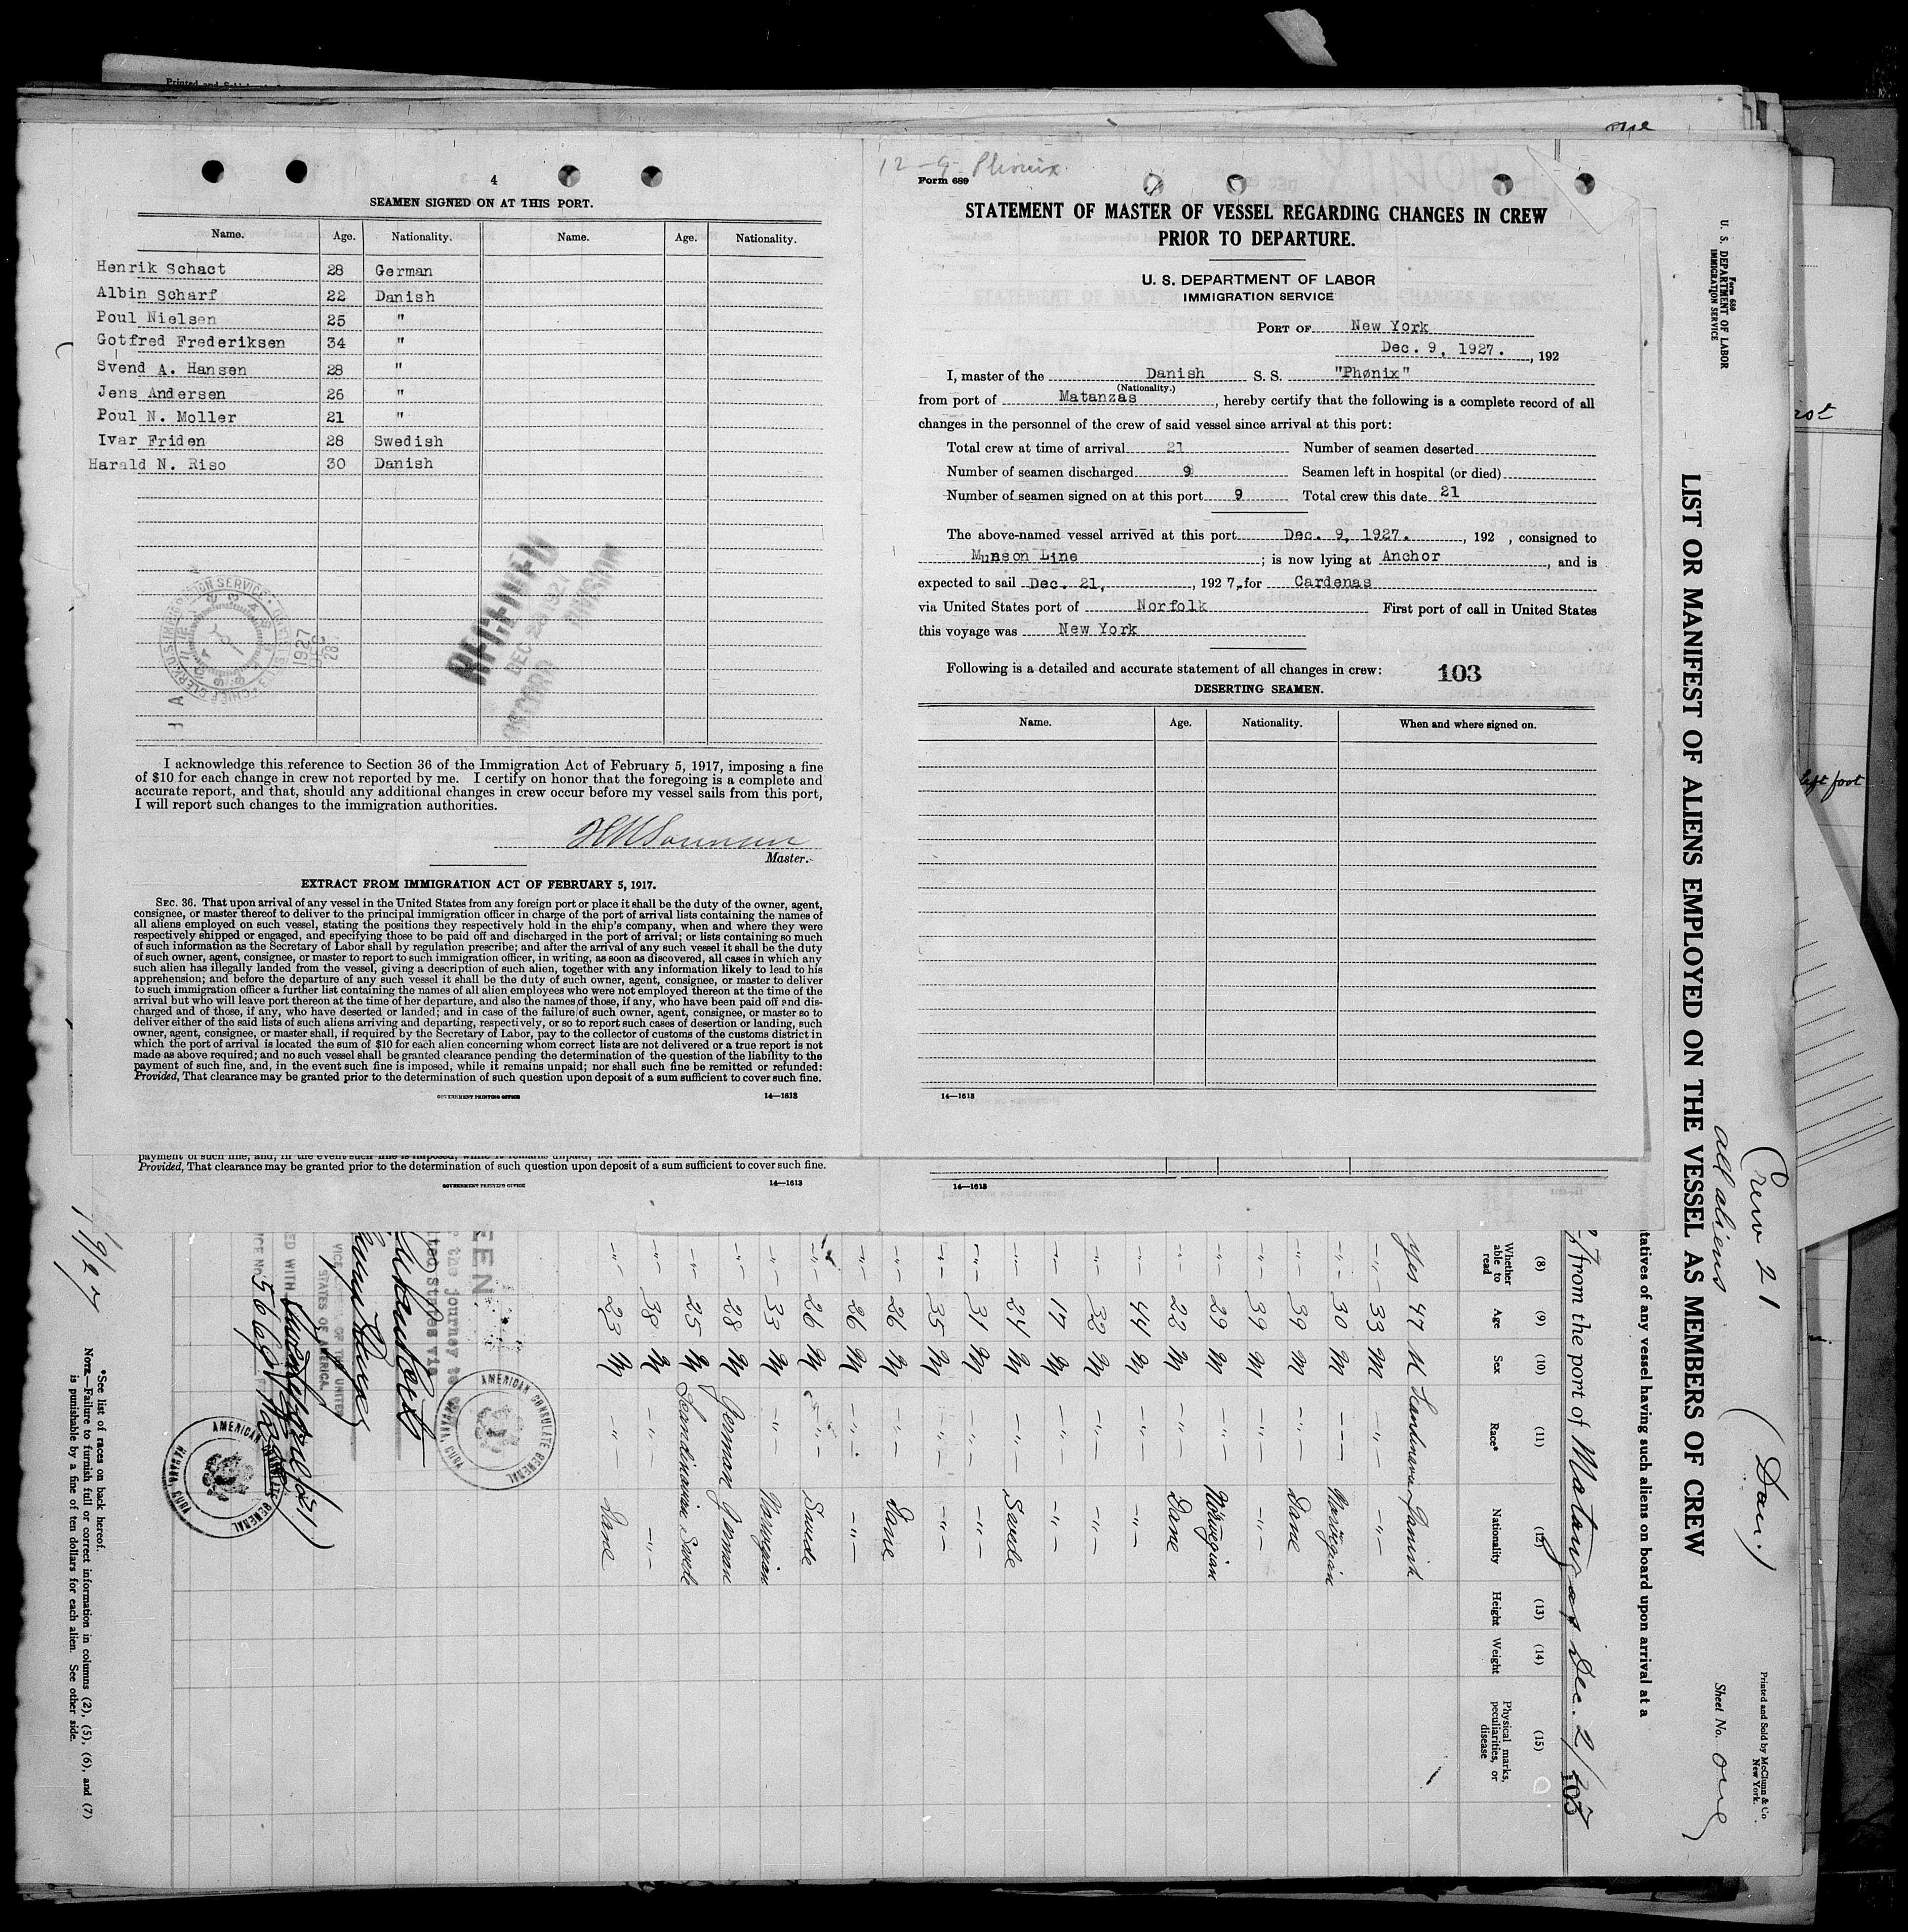 Printed and
4
SEAMEN SIGNED ON AT THIS PORT.
Name. Age. Nationality. Name. Age. Nationality.
Henrik Schact 28 German
Albin Scharf 22 Danish
Poul Nielsen 25 "
Gotfred Frederiksen 34 "
Svend A. Hansen 28 "
Jens Andersen 26 "
Poul N. Moller 21 "
Ivar Friden 28 Swedish
Harald N. Riso 30 Danish
DEC 28 1927
RECORD DIVISION
1927
DEC
28
I acknowledge this reference to Section 36 of the Immigration Act of February 5, 1917, imposing a fine
of $10 for each change in crew not reported by me. I certify on honor that the foregoing is a complete and
accurate report, and that, should any additional changes in crew occur before my vessel sails from this port,
I will report such changes to the immigration authorities.
Master.
EXTRACT FROM IMMIGRATION ACT OF FEBRUARY 5, 1917.
SEC. 36. That upon arrival of any vessel in the United States from any foreign port or place it shall be the duty of the owner, agent,
consignee, or master thereof to deliver to the principal immigration officer in charge of the port of arrival lists containing the names of
all aliens employed on such vessel, stating the positions they respectively hold in the ship's company, when and where they were
respectively shipped or engaged, and specifying those to be paid off and discharged in the port of arrival; or lists containing so much
of such information as the Secretary of Labor shall by regulation prescribe; and after the arrival of any such vessel it shall be the duty
of such owner, agent, consignee, or master to report to such immigration officer, in writing, as soon as discovered, all cases in which any
such alien has illegally landed from the vessel, giving a description of such alien, together with any information likely to lead to his
apprehension; and before the departure of any such vessel it shall be the duty of such owner, agent, consignee, or master to deliver
to such immigration officer a further list containing the names of all alien employees who were not employed thereon at the time of the
arrival but who will leave port thereon at the time of her departure, and also the names of those, if any, who have been paid off and dis-
charged and of those, if any, who have deserted or landed; and in case of the failure of such owner, agent, consignee, or master so to
deliver either of the said lists of such aliens arriving and departing, respectively, or so to report such cases of desertion or landing, such
owner, agent, consignee, or master shall, if required by the Secretary of Labor, pay to the collector of customs of the customs district in
which the port of arrival is located the sum of $10 for each alien concerning whom correct lists are not delivered or a true report is not
made as above required; and no such vessel shall be granted clearance pending the determination of the question of the liability to the
payment of such fine, and, in the event such fine is imposed, while it remains unpaid; nor shall such fine be remitted or refunded:
Provided, That clearance may be granted prior to the determination of such question upon deposit of a sum sufficient to cover such fine.
GOVERNMENT PRINTING OFFICE 14—1613
payment of such fine, and, in the event such fine is imposed, while it remains unpaid;
Provided, That clearance may be granted prior to the determination of such question upon deposit of a sum sufficient to cover such fine.
GOVERNMENT PRINTING OFFICE 14—1613
12-9- Phonix
Form 689
STATEMENT OF MASTER OF VESSEL REGARDING CHANGES IN CREW
PRIOR TO DEPARTURE.
U. S. DEPARTMENT OF LABOR
IMMIGRATION SERVICE
PORT OF New York
Dec. 9, 1927. , 192
I, master of the Danish S. S. "Phønix"
(Nationality.)
from port of Matanzas , hereby certify that the following is a complete record of all
changes in the personnel of the crew of said vessel since arrival at this port:
Total crew at time of arrival 21 Number of seamen deserted
Number of seamen discharged 9 Seamen left in hospital (or died)
Number of seamen signed on at this port 9 Total crew this date 21
The above-named vessel arrived at this port Dec. 9, 1927. , 192 , consigned to
Munson Line ; is now lying at Anchor , and is
expected to sail Dec. 21, , 192 7, for Cardenas
via United States port of Norfolk First port of call in United States
this voyage was New York
Following is a detailed and accurate statement of all changes in crew: 103
DESERTING SEAMEN.
Name. Age. Nationality. When and where signed on.
14—1613
14—1613
Form 680
U. S. DEPARTMENT OF LABOR
IMMIGRATION SERVICE
LIST OR MANIFEST OF ALIENS EMPLOYED ON THE VESSEL AS MEMBERS OF CREW
Crew 21 (Dan.)
all aliens
Printed and Sold by McClunn & Co
New York.
Sheet No. one
tatives of any vessel having such aliens on board upon arrival at a
from the port of Matanzas Dec. 2/27
103
(8) (9) (10) (11) (12) (13) (14) (15)
Whether able to read Age Sex Race* Nationality Height Weight Physical marks, peculiarities, or disease
Yes 47 M Scandinavian Danish
-"- 33 M -"- -"-
-"- 30 M -"- Norwegian
-"- 39 M -"- Dane
-"- 39 M -"- -"-
-"- 29 M -"- Norwegian
-"- 22 M -"- Dane
-"- 44 M -"- -"-
-"- 32 M -"- -"-
-"- 17 M -"- -"-
-"- 24 M -"- Swede
-"- 31 M -"- -"-
-"- 35 M -"- -"-
-"- 26 M -"- Dane
-"- 26 M -"- -"-
-"- 26 M -"- Swede
-"- 33 M -"- Norwegian
-"- 28 M German German
-"- 25 M Scandinavian Swede
-"- 38 M -"- -"-
-"- 23 M -"- Dane
EEN
the journey to
ted States via
AMERICAN CONSULATE GENERAL
HAVANA, CUBA
VICE OF THE UNITED
STATES OF AMERICA.
ED WITH
ICE No. 5669
AMERICAN CONSULATE GENERAL
HAVANA, CUBA
*See list of races on back hereof.
NOTE.—Failure to furnish full or correct information in columns (2), (5), (6), and (7)
is punishable by a fine of ten dollars for each alien. See other side.
left foot